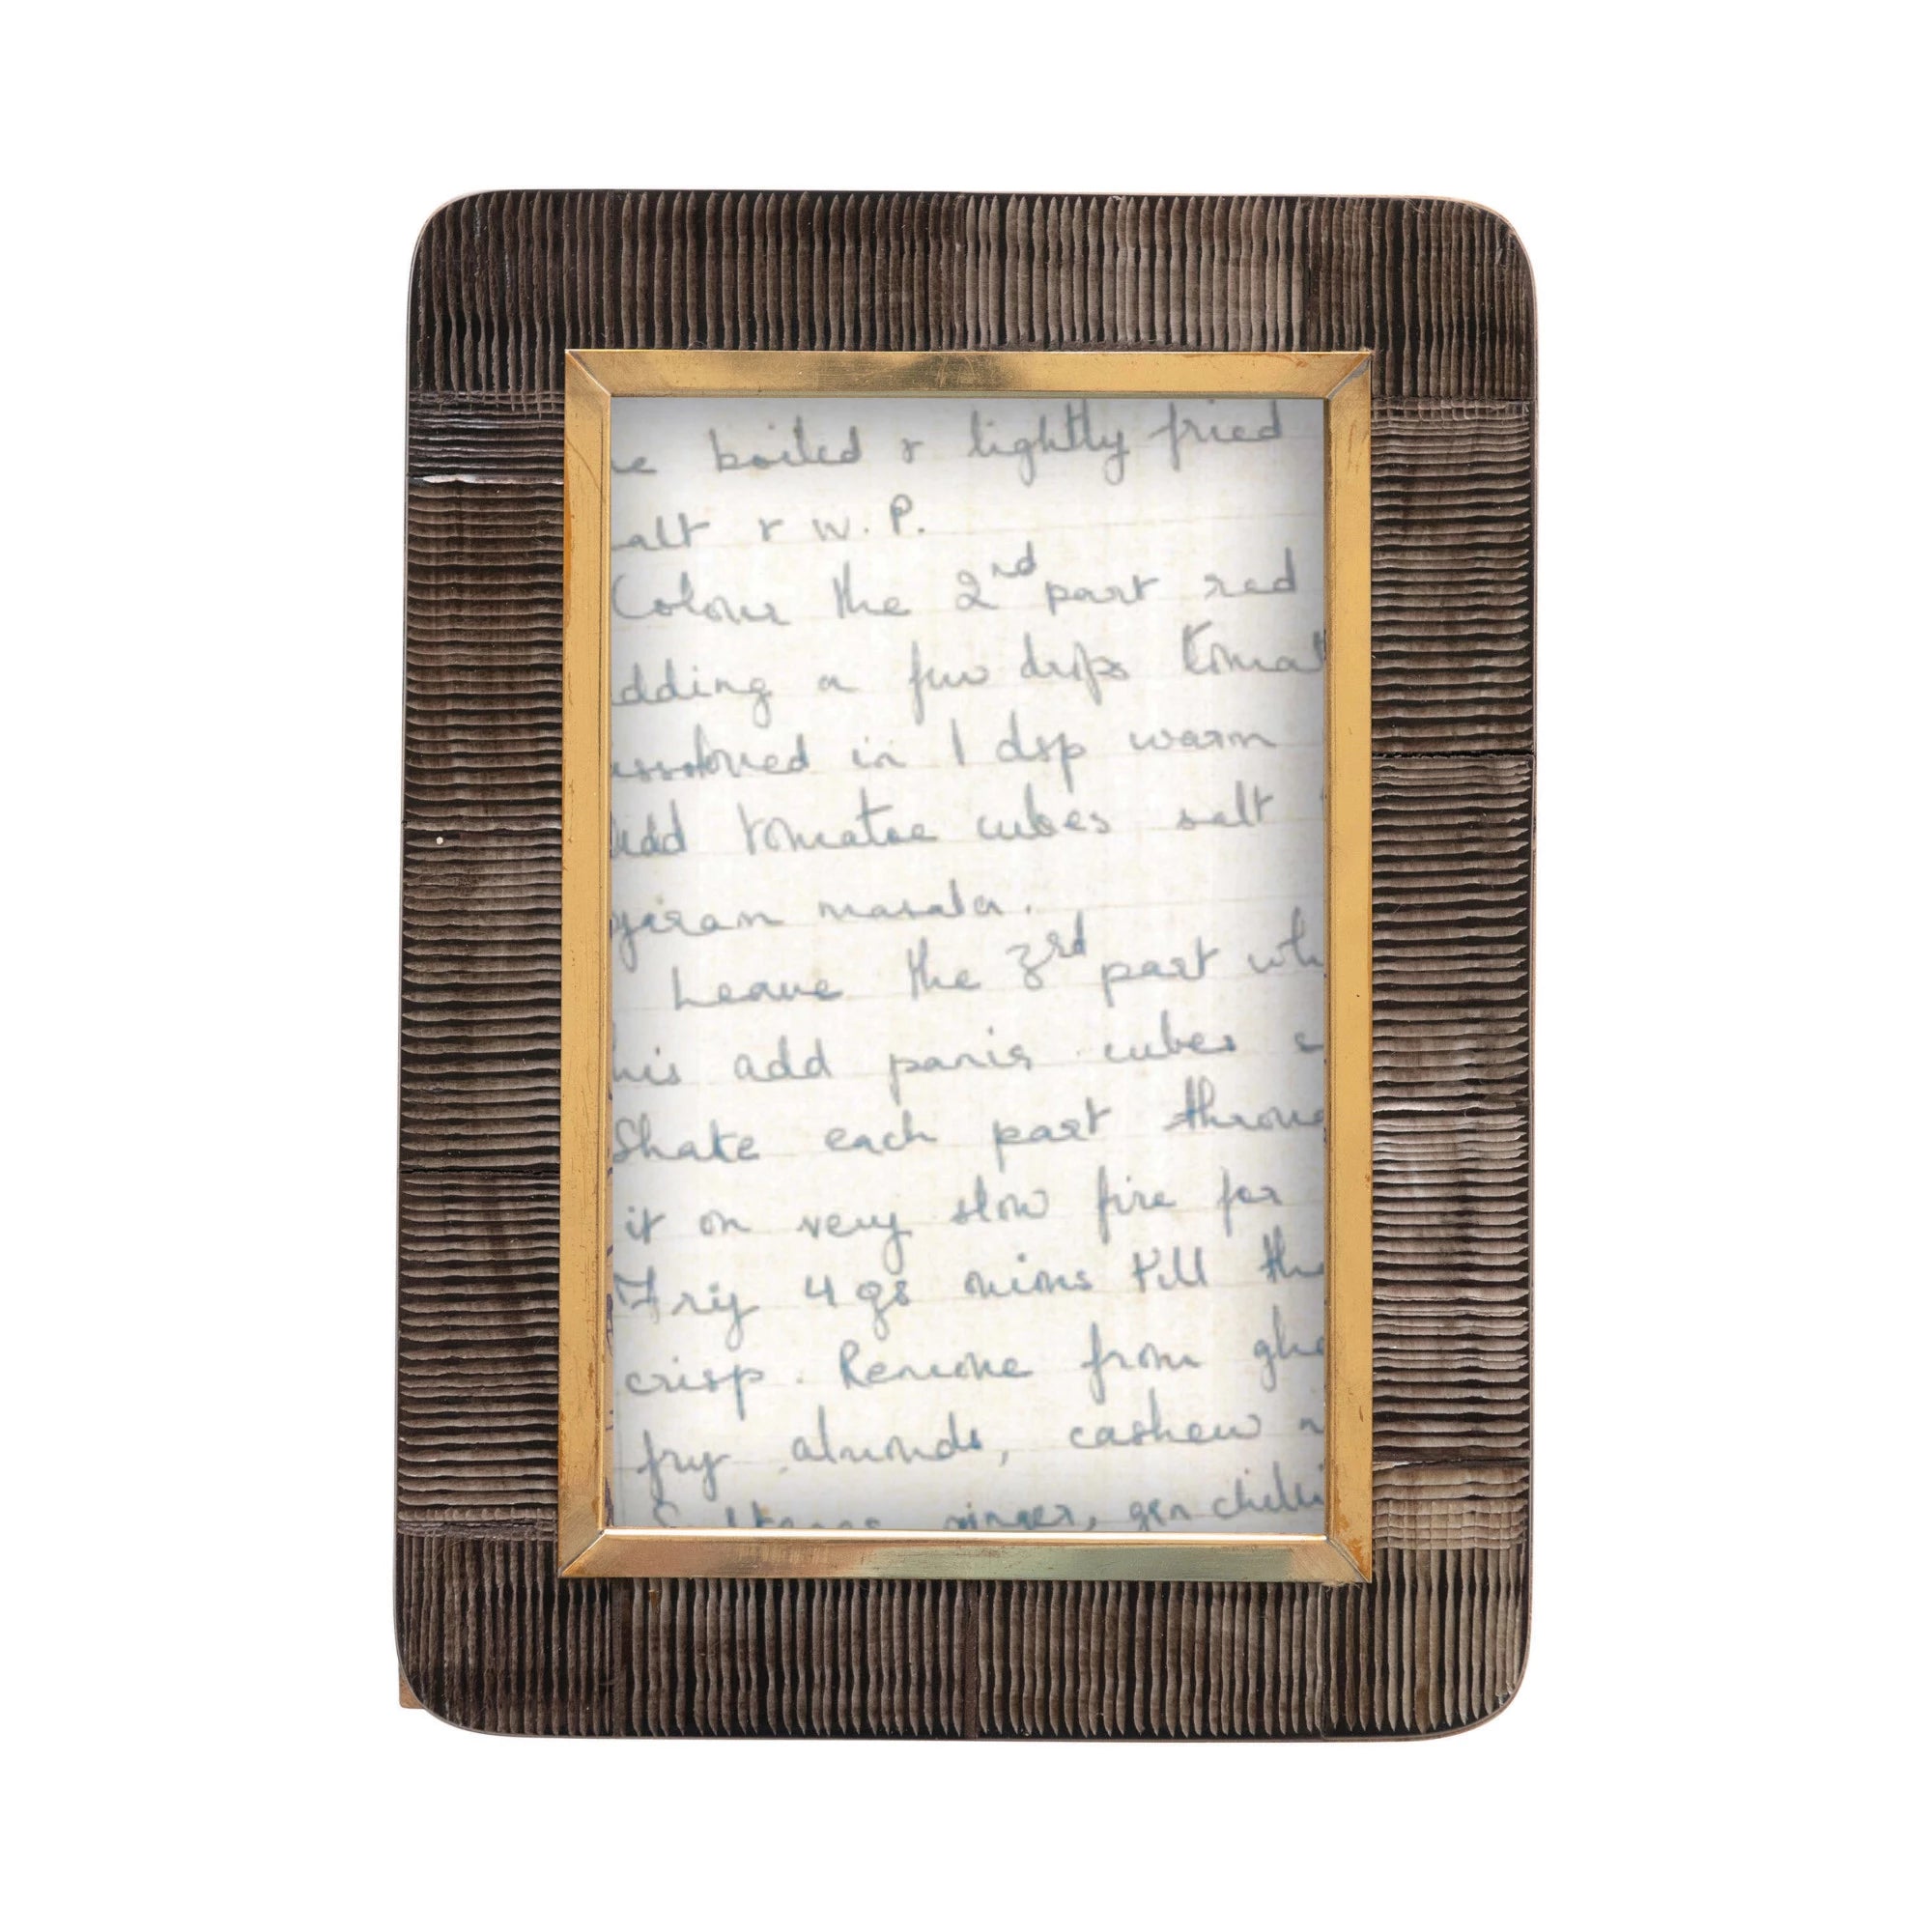 e boiled & lightly fried
alt & W.P.
Colour the 2nd part red
dding a few drips tomat
issolved in 1 dsp warm
Add tomatoe cubes salt
garam masala.
Leave the 3rd part wh
his add panir cubes s
Shake each part throug
it on very slow fire for
Fry 4 gs onions till the
crisp. Remove from ghe
fry almonds, cashew n
Sultanas ginger, grn chilli